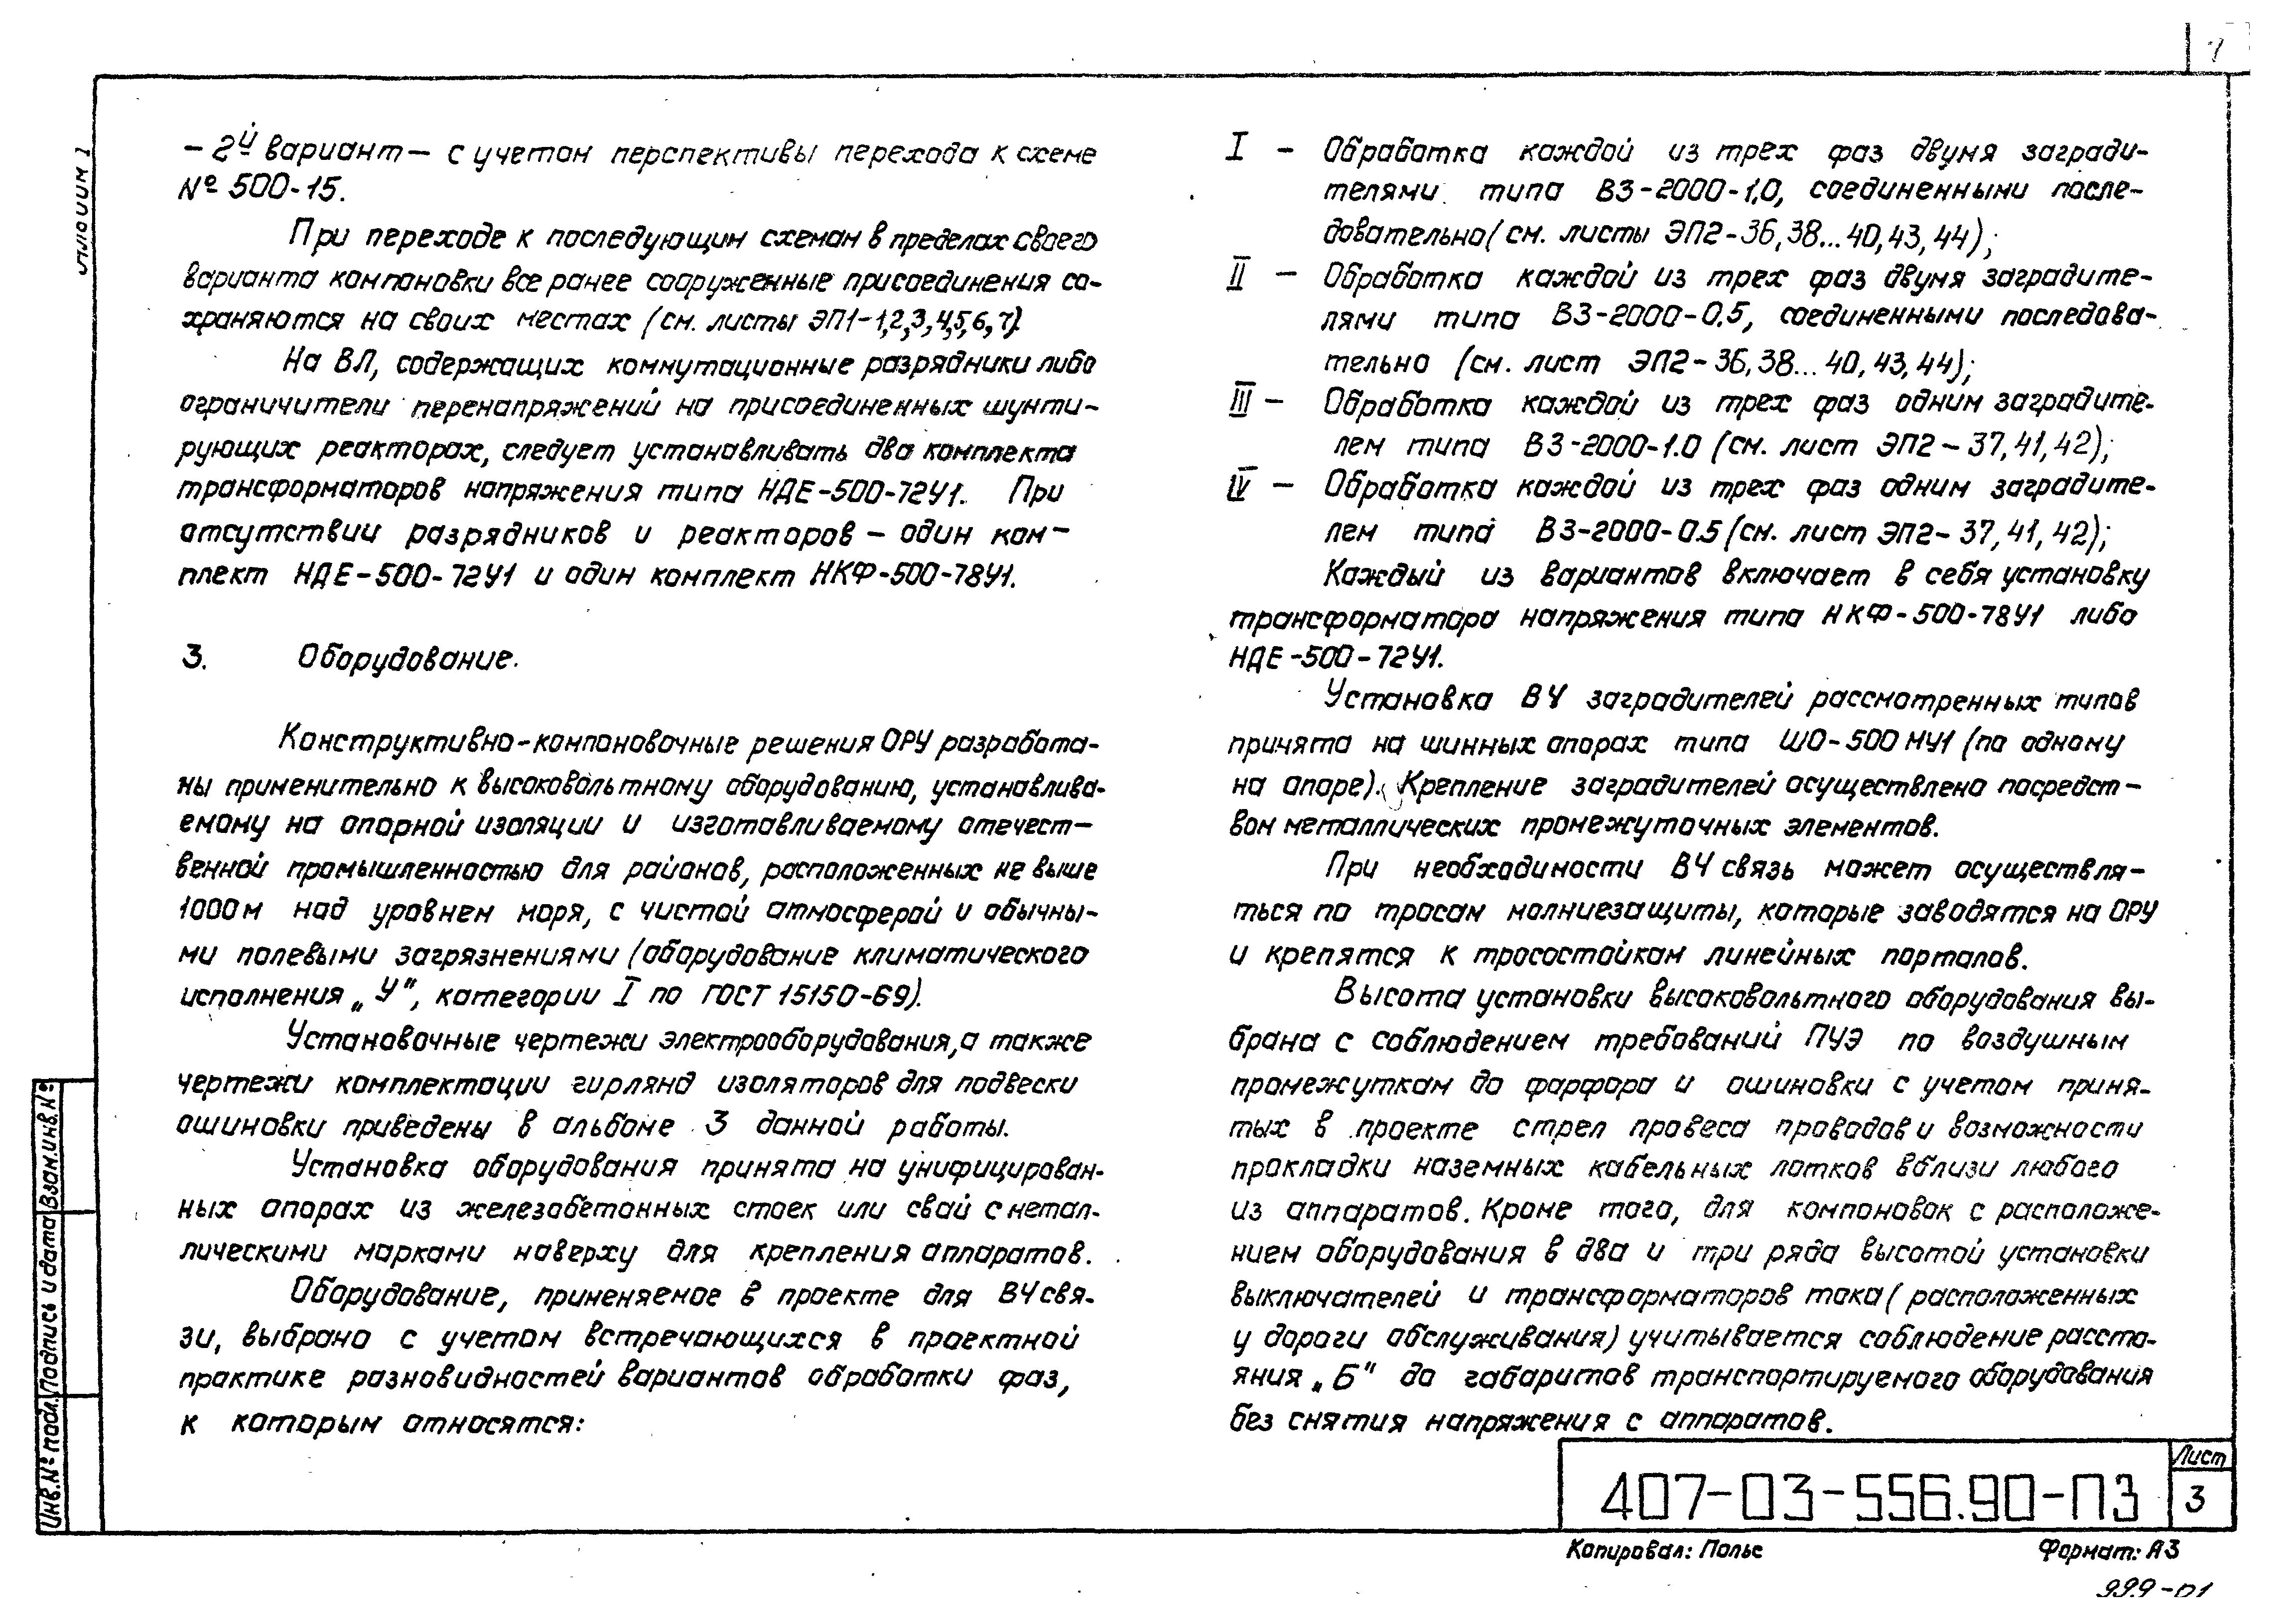 7
Альбом 1
- 2й вариант - с учетом перспективы перехода к схеме
№ 500-15.
При переходе к последующим схемам в пределах своего
варианта компановки все ранее сооруженные присоединения со-
храняются на своих местах (см. листы ЭП1-1,2,3,4,5,6,7)
На ВЛ, содержащих коммутационные разрядники либо
ограничители перенапряжений на присоединенных шунти-
рующих реакторах, следует устанавливать два комплекта
трансформаторов напряжения типа НДЕ-500-72У1. При
отсутствии разрядников и реакторов - один ком-
плект НДЕ-500-72У1 и один комплект НКФ-500-78У1.
3. Оборудование.
Конструктивно-компоновочные решения ОРУ разработа-
ны применительно к высоковольтному оборудованию, устанавлива-
емому на опорной изоляции и изготавливаемому отечест-
венной промышленностью для районов, расположенных не выше
1000м над уровнем моря, с чистой атмосферой и обычны-
ми полевыми загрязнениями (оборудование климатического
исполнения „У", категории I по ГОСТ 15150-69).
Установочные чертежи электрооборудования, а также
чертежи комплектации гирлянд изоляторов для подвески
ошиновки приведены в альбоме 3 данной работы.
Установка оборудования принята на унифицирован-
ных опорах из железобетонных стоек или свай с метал-
лическими марками наверху для крепления аппаратов.
Оборудование, применяемое в проекте для ВЧ свя-
зи, выбрано с учетом встречающихся в проектной
практике разновидностей вариантов обработки фаз,
к которым относятся:
I - Обработка каждой из трех фаз двумя загради-
телями типа ВЗ-2000-1,0, соединенными после-
довательно (см. листы ЭП2-36,38...40,43,44);
II - Обработка каждой из трех фаз двумя заградите-
лями типа ВЗ-2000-0.5, соединенными последова-
тельно (см. лист ЭП2-36,38...40,43,44);
III - Обработка каждой из трех фаз одним заградите-
лем типа ВЗ-2000-1.0 (см. лист ЭП2-37,41,42);
IV - Обработка каждой из трех фаз одним заградите-
лем типа ВЗ-2000-0.5 (см. лист ЭП2-37,41,42);
Каждый из вариантов включает в себя установку
трансформатора напряжения типа НКФ-500-78У1 либо
НДЕ-500-72У1.
Установка ВЧ заградителей рассмотренных типов
принята на шинных опорах типа ШО-500МУ1 (по одному
на опоре). Крепление заградителей осуществлено посредст-
вом металлических промежуточных элементов.
При необходимости ВЧ связь может осуществля-
ться по тросам молниезащиты, которые заводятся на ОРУ
и крепятся к тросостойкам линейных порталов.
Высота установки высоковольтного оборудования вы-
брана с соблюдением требований ПУЭ по воздушным
промежуткам до фарфора и ошиновки с учетом приня-
тых в проекте стрел провеса проводов и возможности
прокладки наземных кабельных лотков вблизи любого
из аппаратов. Кроме того, для компоновок с расположе-
нием оборудования в два и три ряда высотой установки
выключателей и трансформаторов тока (расположенных
у дороги обслуживания) учитывается соблюдение рассто-
яния „Б" до габаритов транспортируемого оборудования
без снятия напряжения с аппаратов.
Инв.№ подл. Подпись и дата Взам.инв.№
407-03-556.90-ПЗ
Лист
3
Копировал: Полье
Формат: А3
999-01